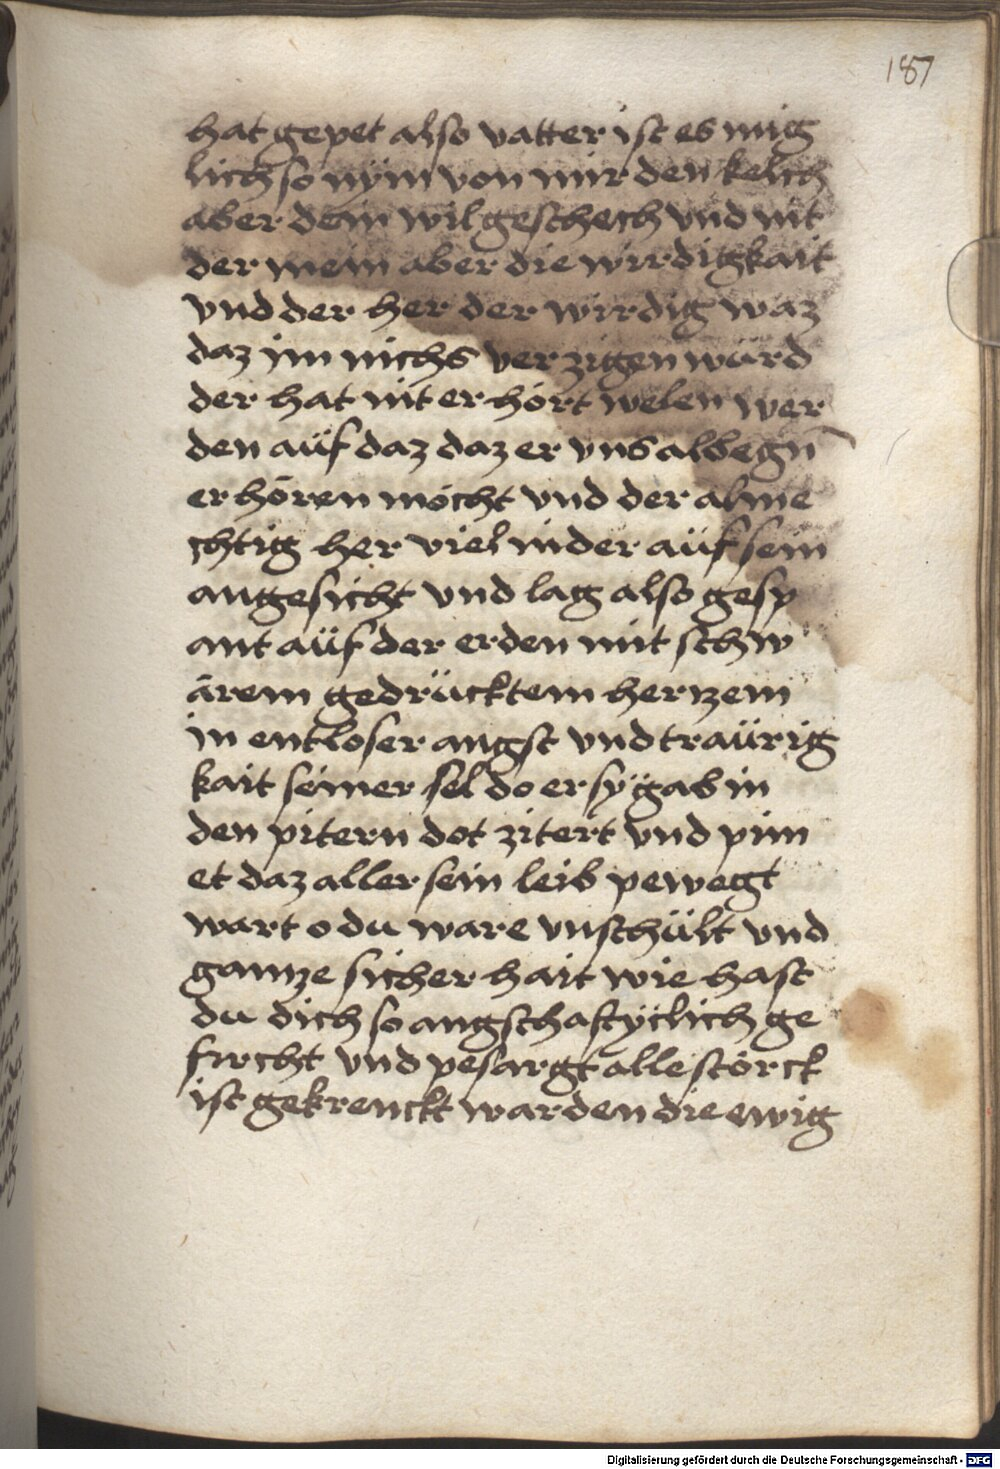 187
hat gepet also vatter ist es müg
lich so nÿm von mir den kelch
aber dein wil geschech vnd nit
der mein aber die wirdigkait
vnd der her der wirdig waz
daz im nichs verzigen würd
der hat nit erhört welen wer
den aüf daz daz er vns albegn̄
erhören möcht vnd der alme
chtig her viel nider aüf sein
angesicht vnd lag also gesp
ant aüf der erden mit schw
ärem gedrücktem hertzem
in entloser angst vnd traürig
kait seiner sel do er sÿ gab in
den pitern dot zitert vnd pim
et daz aller sein leib pewegt
wart o du ware vnschült vnd
gantze sicherhait wie hast
du dich so angschaftÿclich ge
fircht vnd pesargt alle störck
ist gekrenckt warden die ewig
Digitalisierung gefördert durch die Deutsche Forschungsgemeinschaft - DFG